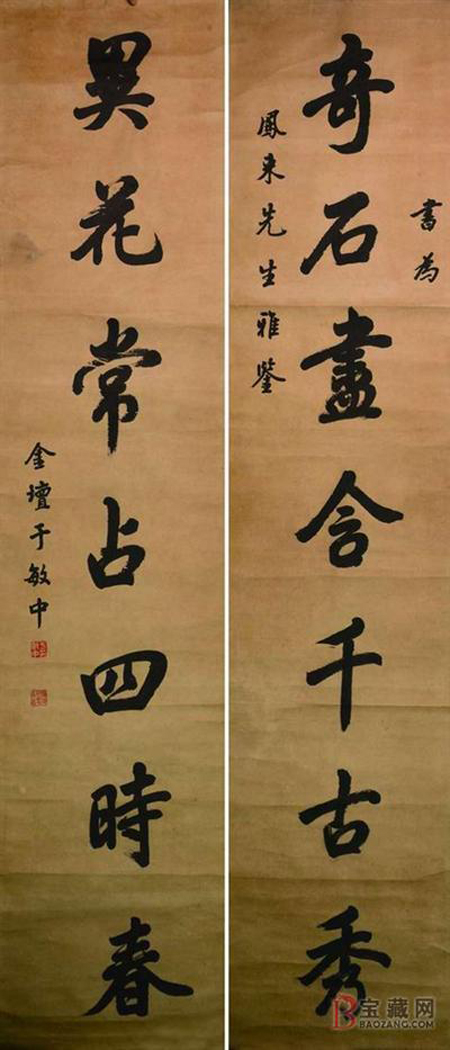 書為
奇石盡含千古秀
鳳来先生雅鑒
異花常占四時春
金壇于敏中
宝藏网
BAOZANG.COM